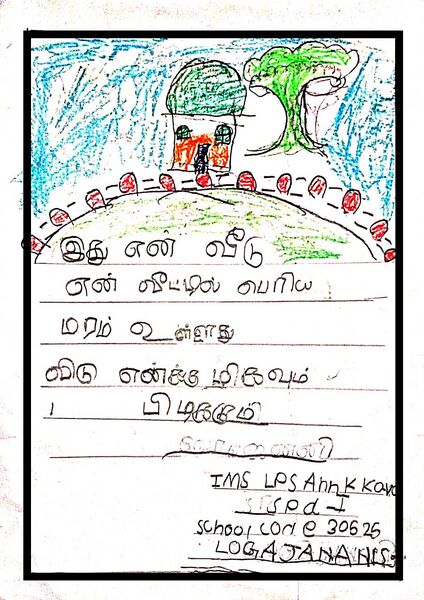 இது என் வீடு
என் வீட்டில் பெரிய
மரம் உள்ளது
விடு எனக்கு மிகவும்
பிடிக்கும்
IMS LPS
STSPd-I
school code 30625
LOGAJANANIS